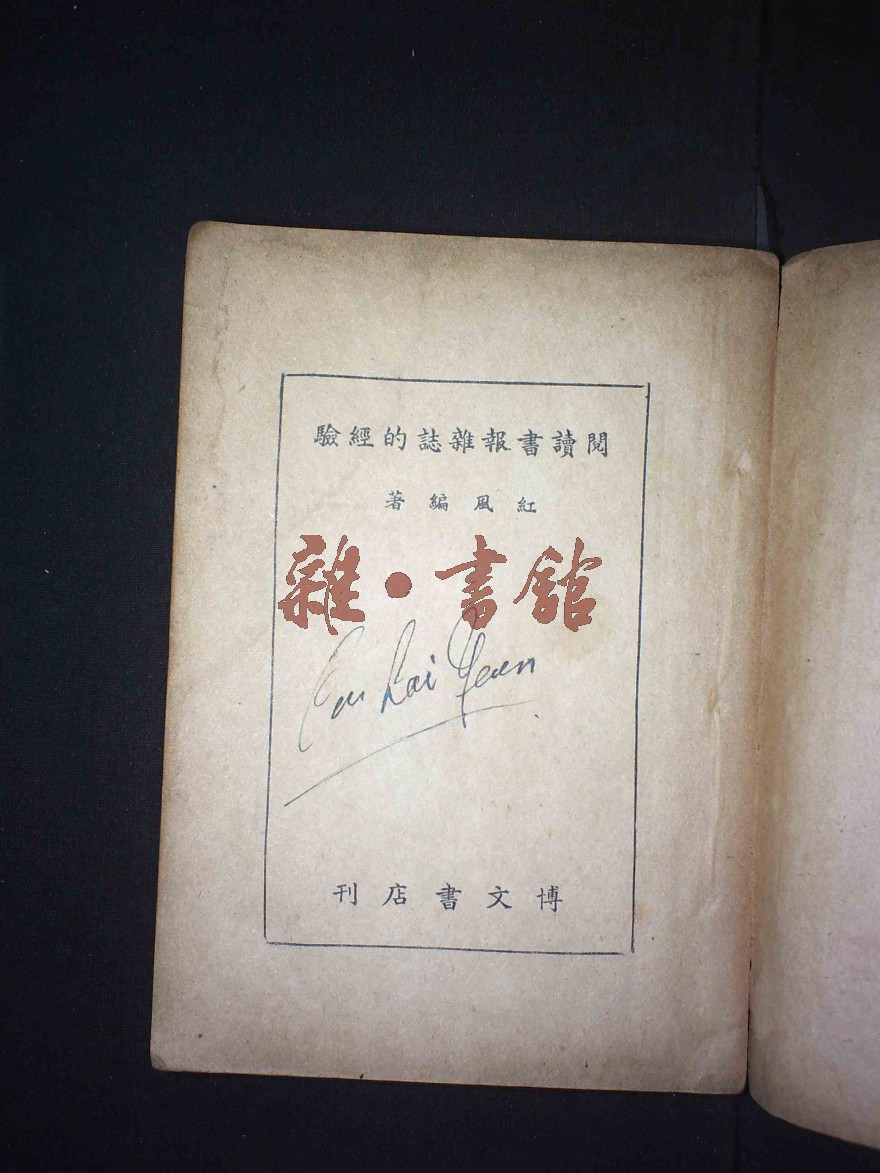 閱讀書報雜誌的經驗
紅風編著
雜·書館
博文書店刊